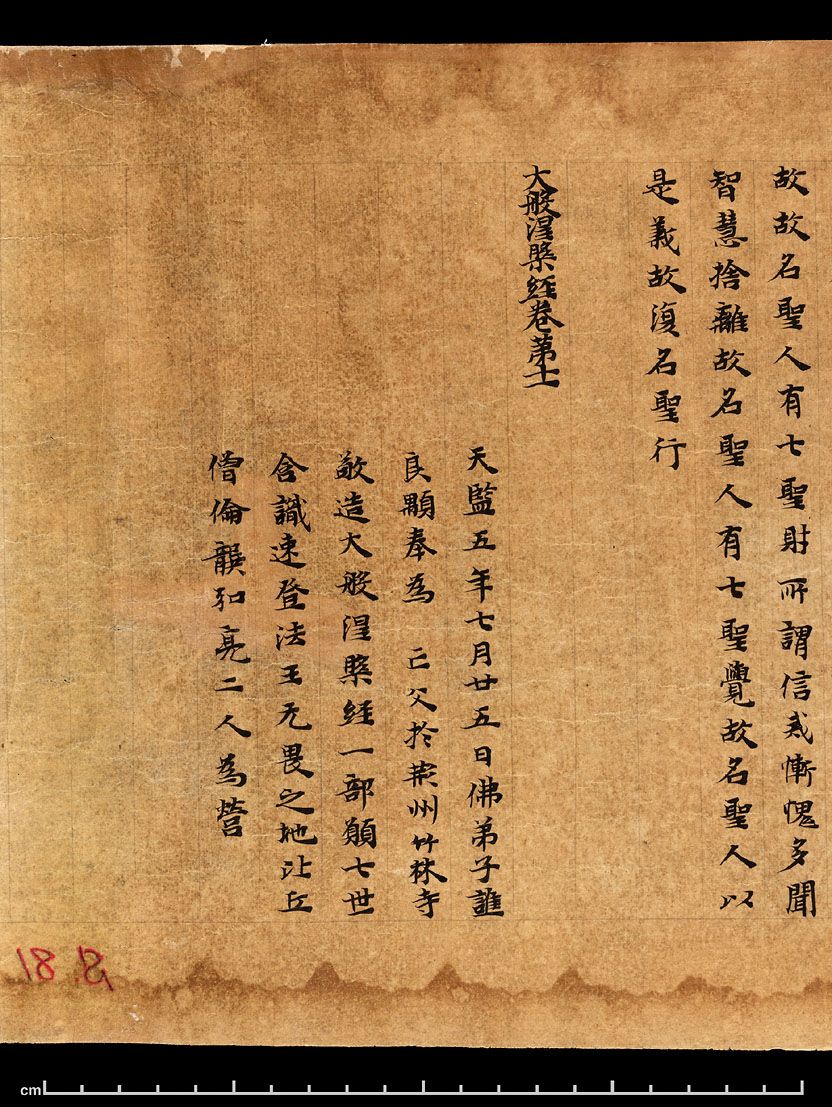 故故名聖人有七聖財所謂信戒慚愧多聞
智慧捨離故名聖人有七聖覺故名聖人以
是義故復名聖行
大般涅槃經卷第十一
天監五年七月廿五日佛弟子譙
良顒奉為 亡父於荊州竹林寺
敬造大般涅槃經一部願七世
含識速登法王无畏之地比丘
僧倫龔弘亮二人為營
S. 81
18
cm